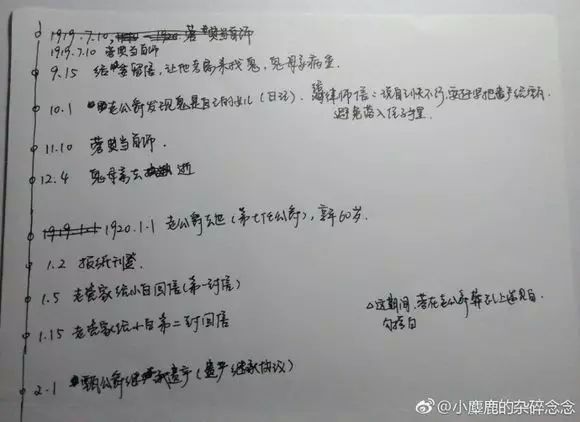 1919.7.10
1919.7.10 当首师
9.15 给 留信, 让他老家来找惠, 惠母亲病重
10.1 老公爵发现惠是自己的女儿(日记). 律师信: 说自己快不行, 要 把遗产给
避免落入 手里.
11.10 当首师.
12.4 惠母亲去逝
1919.1.1 1920.1.1 老公爵去世(第七任公爵), 享年60岁.
1.2 报纸刊登.
1.5 老管家给小白回信(第一封信)
1.15 老管家给小白第二封回信
△这期间, 在老公爵葬礼上遇见白,
勾搭白
2.1 甄公爵继承遗产(遗产继承协议)
@小麋鹿的杂碎念念